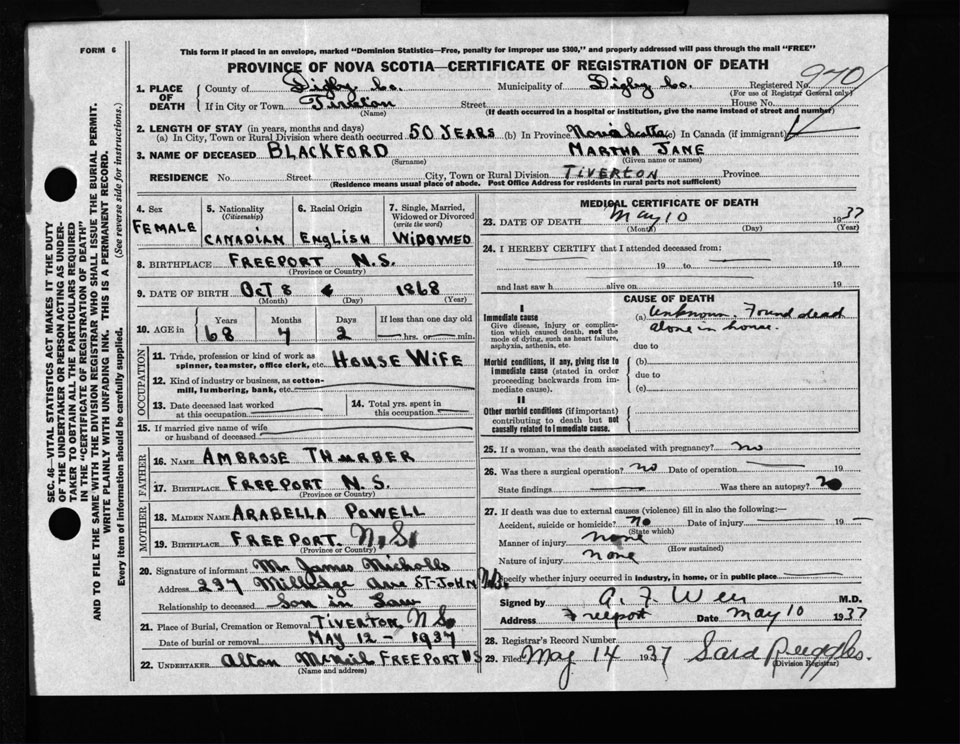 FORM 6
This form if placed in an envelope, marked "Dominion Statistics—Free, penalty for improper use $300," and properly addressed will pass through the mail "FREE"
PROVINCE OF NOVA SCOTIA—CERTIFICATE OF REGISTRATION OF DEATH
970
1. PLACE OF DEATH { County of Digby Co. Municipality of Digby Co. Registered No.
(For use of Registrar General only)
If in City or Town Tiverton Street House No.
(Name) (If death occurred in a hospital or institution, give the name instead of street and number)
2. LENGTH OF STAY (in years, months and days)
(a) In City, Town or Rural Division where death occurred 50 YEARS (b) In Province Nova Scotia (c) In Canada (if immigrant)
3. NAME OF DECEASED BLACKFORD MARTHA JANE
(Surname) (Given name or names)
RESIDENCE No. Street City, Town or Rural Division TIVERTON Province
(Residence means usual place of abode. Post Office Address for residents in rural parts not sufficient)
4. Sex FEMALE
5. Nationality (Citizenship) CANADIAN
6. Racial Origin ENGLISH
7. Single, Married, Widowed or Divorced (write the word) WIDOWED
8. BIRTHPLACE FREEPORT N.S.
(Province or Country)
9. DATE OF BIRTH OCT 8 1868
(Month) (Day) (Year)
10. AGE in { Years Months Days If less than one day old
68 7 2 hrs. or min.
OCCUPATION
11. Trade, profession or kind of work as spinner, teamster, office clerk, etc. HOUSE WIFE
12. Kind of industry or business, as cotton-mill, lumbering, bank, etc.
13. Date deceased last worked at this occupation
14. Total yrs. spent in this occupation
15. If married give name of wife or husband of deceased
FATHER
16. NAME AMBROSE THURBER
17. BIRTHPLACE FREEPORT N.S.
(Province or Country)
MOTHER
18. MAIDEN NAME ARABELLA POWELL
19. BIRTHPLACE FREEPORT. N.S.
(Province or Country)
20. Signature of informant Mr James Nicholls
Address 237 Milledge Ave ST-JOHN N.B.
Relationship to deceased Son in Law
21. Place of Burial, Cremation or Removal TIVERTON N.S.
Date of burial or removal MAY 12 - 1937
22. UNDERTAKER Alton McNeil FREEPORT N S
(Name and address)
MEDICAL CERTIFICATE OF DEATH
23. DATE OF DEATH May 10 1937
(Month) (Day) (Year)
24. I HEREBY CERTIFY that I attended deceased from:
19 to 19
and last saw h alive on 19
CAUSE OF DEATH
I
Immediate cause
Give disease, injury or complication which caused death, not the mode of dying, such as heart failure, asphyxia, asthenia, etc.
(a) Unknown. Found dead
alone in house.
due to
Morbid conditions, if any, giving rise to immediate cause (stated in order proceeding backwards from immediate cause).
(b)
due to
(c)
II
Other morbid conditions (if important) contributing to death but not causally related to immediate cause.
25. If a woman, was the death associated with pregnancy? no
26. Was there a surgical operation? no Date of operation 19
State findings Was there an autopsy? no
27. If death was due to external causes (violence) fill in also the following:—
Accident, suicide or homicide? no Date of injury 19
(State which)
Manner of injury none
(How sustained)
Nature of injury none
Specify whether injury occurred in industry, in home, or in public place
Signed by M.D.
Address Freeport Date May 10 1937
28. Registrar's Record Number
29. Filed May 14 1937
(Division Registrar)
SEC. 46—VITAL STATISTICS ACT MAKES IT THE DUTY
OF THE UNDERTAKER OR PERSON ACTING AS UNDER-
TAKER TO OBTAIN ALL THE PARTICULARS REQUIRED
IN THE "CERTIFICATE OF REGISTRATION OF DEATH"
AND TO FILE THE SAME WITH THE DIVISION REGISTRAR WHO SHALL ISSUE THE BURIAL PERMIT.
WRITE PLAINLY WITH UNFADING INK. THIS IS A PERMANENT RECORD.
Every item of information should be carefully supplied. (See reverse side for instructions.)